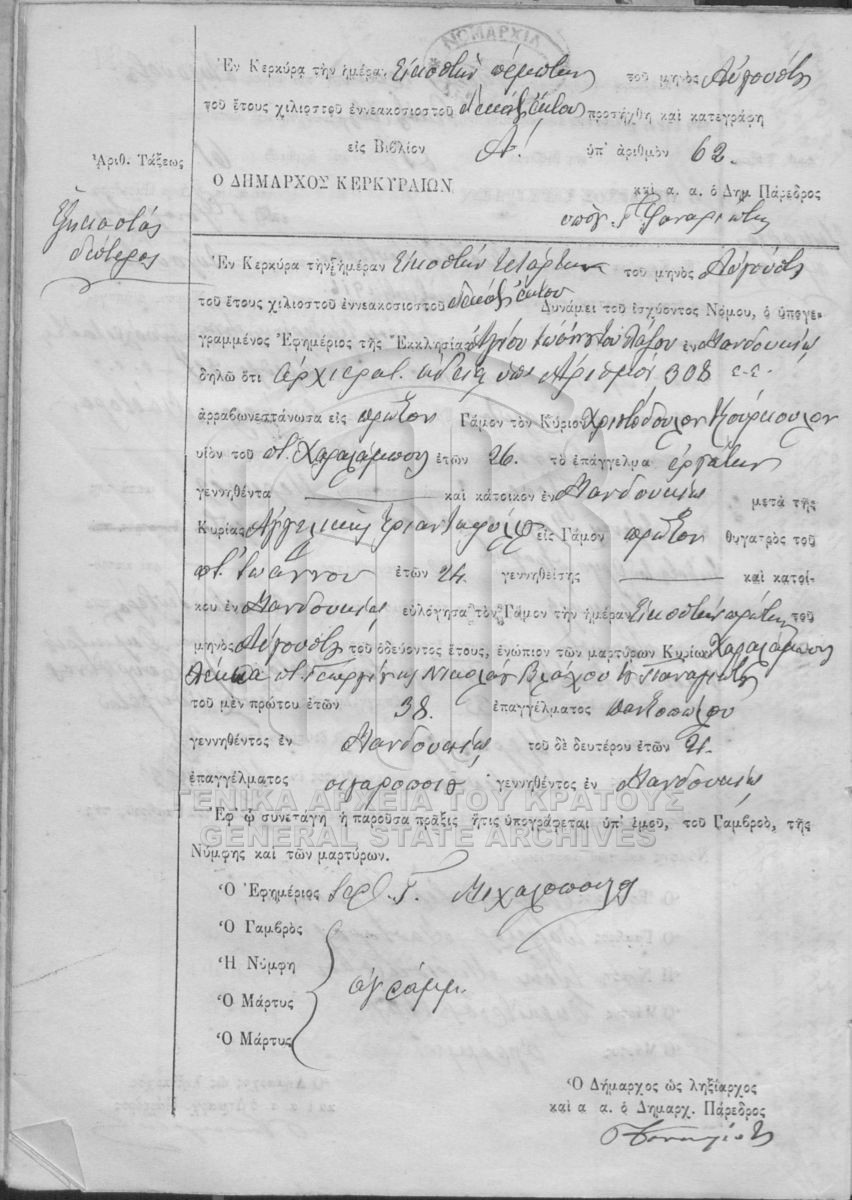 ΝΟΜΑΡΧΙΑ
Ἐν Κερκύρᾳ τὴν ἡμέραν Εἰκοστὴν πέμπτην τοῦ μηνὸς Αὐγούστου
τοῦ ἔτους χιλιοστοῦ ἐννεακοσιοστοῦ δεκάτου ἕκτου προσήχθη καὶ κατεγράφη
εἰς Βιβλίον Α' ὑπ' ἀριθμὸν 62.
Ἀριθ. Τάξεως
Ο ΔΗΜΑΡΧΟΣ ΚΕΡΚΥΡΑΙΩΝ
καὶ α. α. ὁ Δημ. Πάρεδρος
ὑπογ. Γ
Ἑξηκοστὸς
δεύτερος
Ἐν Κερκύρᾳ τὴν ἡμέραν Εἰκοστὴν τετάρτην τοῦ μηνὸς Αὐγούστου
τοῦ ἔτους χιλιοστοῦ ἐννεακοσιοστοῦ δεκάτου ἕκτου Δυνάμει τοῦ ἰσχύοντος Νόμου, ὁ ὑπογε-
γραμμένος Ἐφημέριος τῆς Ἐκκλησίας Ἁγίου ἐν Μανδουκίῳ
δηλῶ ὅτι ἀρχιερατ. ἀδείᾳ ὑπ' ἀριθμὸν 308 ἐ.ἔ.
ἀρραβωνεστάνωσα εἰς πρῶτον Γάμον τὸν Κύριον Χριστόδουλον Κούρκουλον
υἱὸν τοῦ π. Χαραλάμπους ἐτῶν 26. τὸ ἐπάγγελμα ἐργάτην
γεννηθέντα καὶ κάτοικον ἐν Μανδουκίῳ μετὰ τῆς
Κυρίας Ἀγγελικῆς Τριανταφύλλου εἰς Γάμον πρῶτον θυγατρὸς τοῦ
π. Ἰωάννου ἐτῶν 24. γεννηθείσης καὶ κατοί-
κου ἐν Μανδουκίῳ εὐλόγησα τὸν Γάμον τὴν ἡμέραν Εἰκοστὴν πρώτην τοῦ
μηνὸς Αὐγούστου τοῦ ὁδεύοντος ἔτους, ἐνώπιον τῶν μαρτύρων Κυρίων Χαραλάμπους
π. Γεωργίου καὶ Νικολάου Βλάχου π. Παναγιώτη
τοῦ μὲν πρώτου ἐτῶν 38. ἐπαγγέλματος παντοπώλου
γεννηθέντος ἐν Μανδουκίῳ τοῦ δὲ δευτέρου ἐτῶν 21.
ἐπαγγέλματος σιγαροποιοῦ γεννηθέντος ἐν Μανδουκίῳ
ΓΕΝΙΚΑ ΑΡΧΕΙΑ ΤΟΥ ΚΡΑΤΟΥΣ
Ἐφ' ᾧ συνετάγη ἡ παροῦσα πρᾶξις ἥτις ὑπογράφεται ὑπ' ἐμοῦ, τοῦ Γαμβροῦ, τῆς
GENERAL STATE ARCHIVES
Νύμφης καὶ τῶν μαρτύρων.
Ὁ Ἐφημέριος Ἱερ. Γ. Μιχαλόπουλος
Ὁ Γαμβρὸς
Ἡ Νύμφη
ἀγράμμ.
Ὁ Μάρτυς
Ὁ Μάρτυς
Ὁ Δήμαρχος ὡς ληξίαρχος
καὶ α α. ὁ Δημαρχ. Πάρεδρος